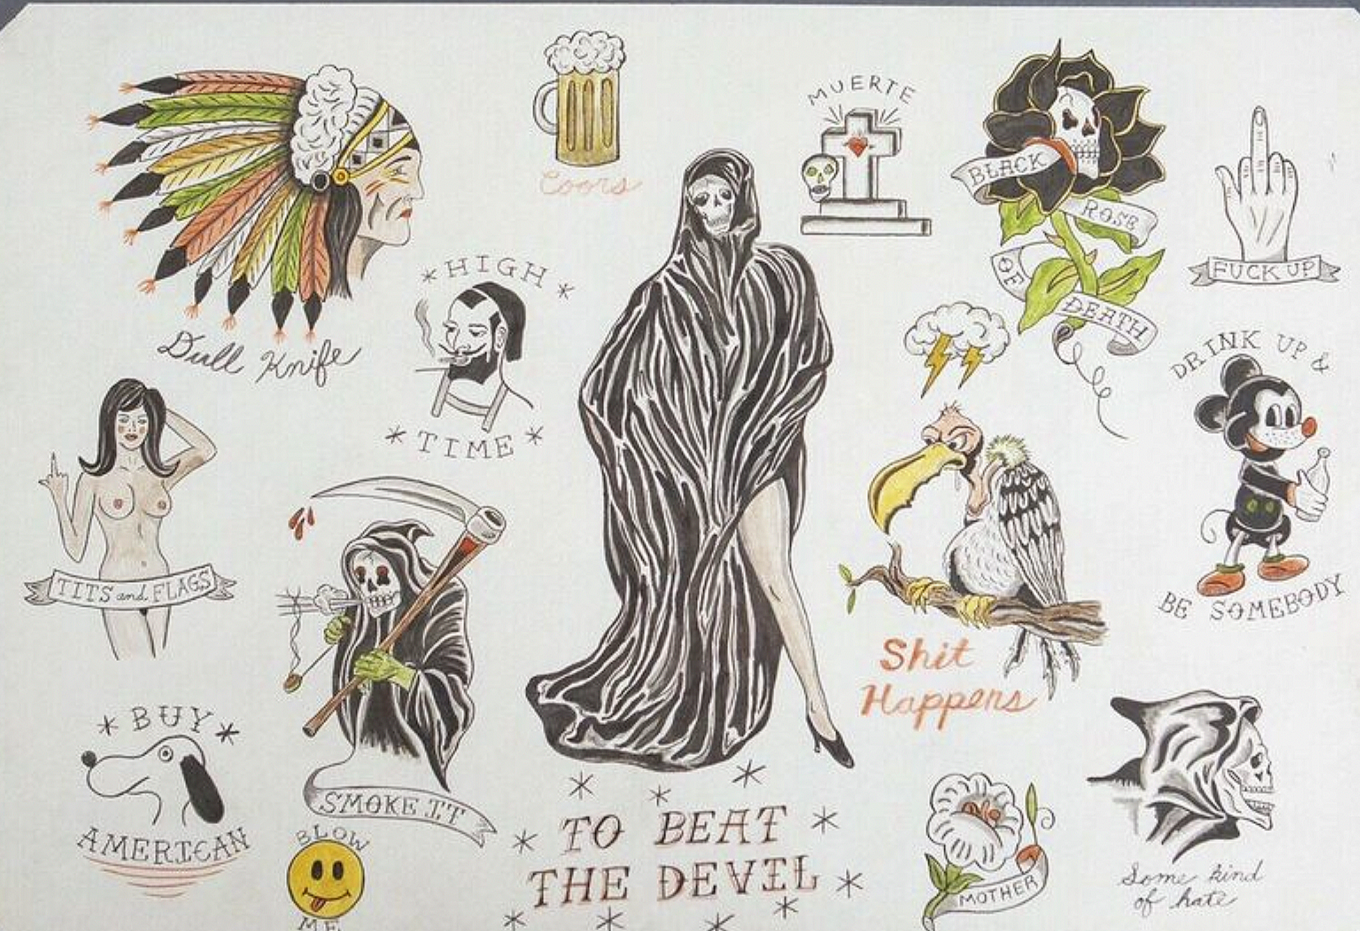 MUERTE
Coors
BLACK
ROSE
OF
DEATH
FUCK UP
*HIGH*
*TIME*
Dull Knife
DRINK UP &
BE SOMEBODY
TITS and FLAGS
Shit
Happens
*BUY*
AMERICAN
SMOKE IT
BLOW
ME
TO BEAT
THE DEVIL
MOTHER
Some kind
of hate